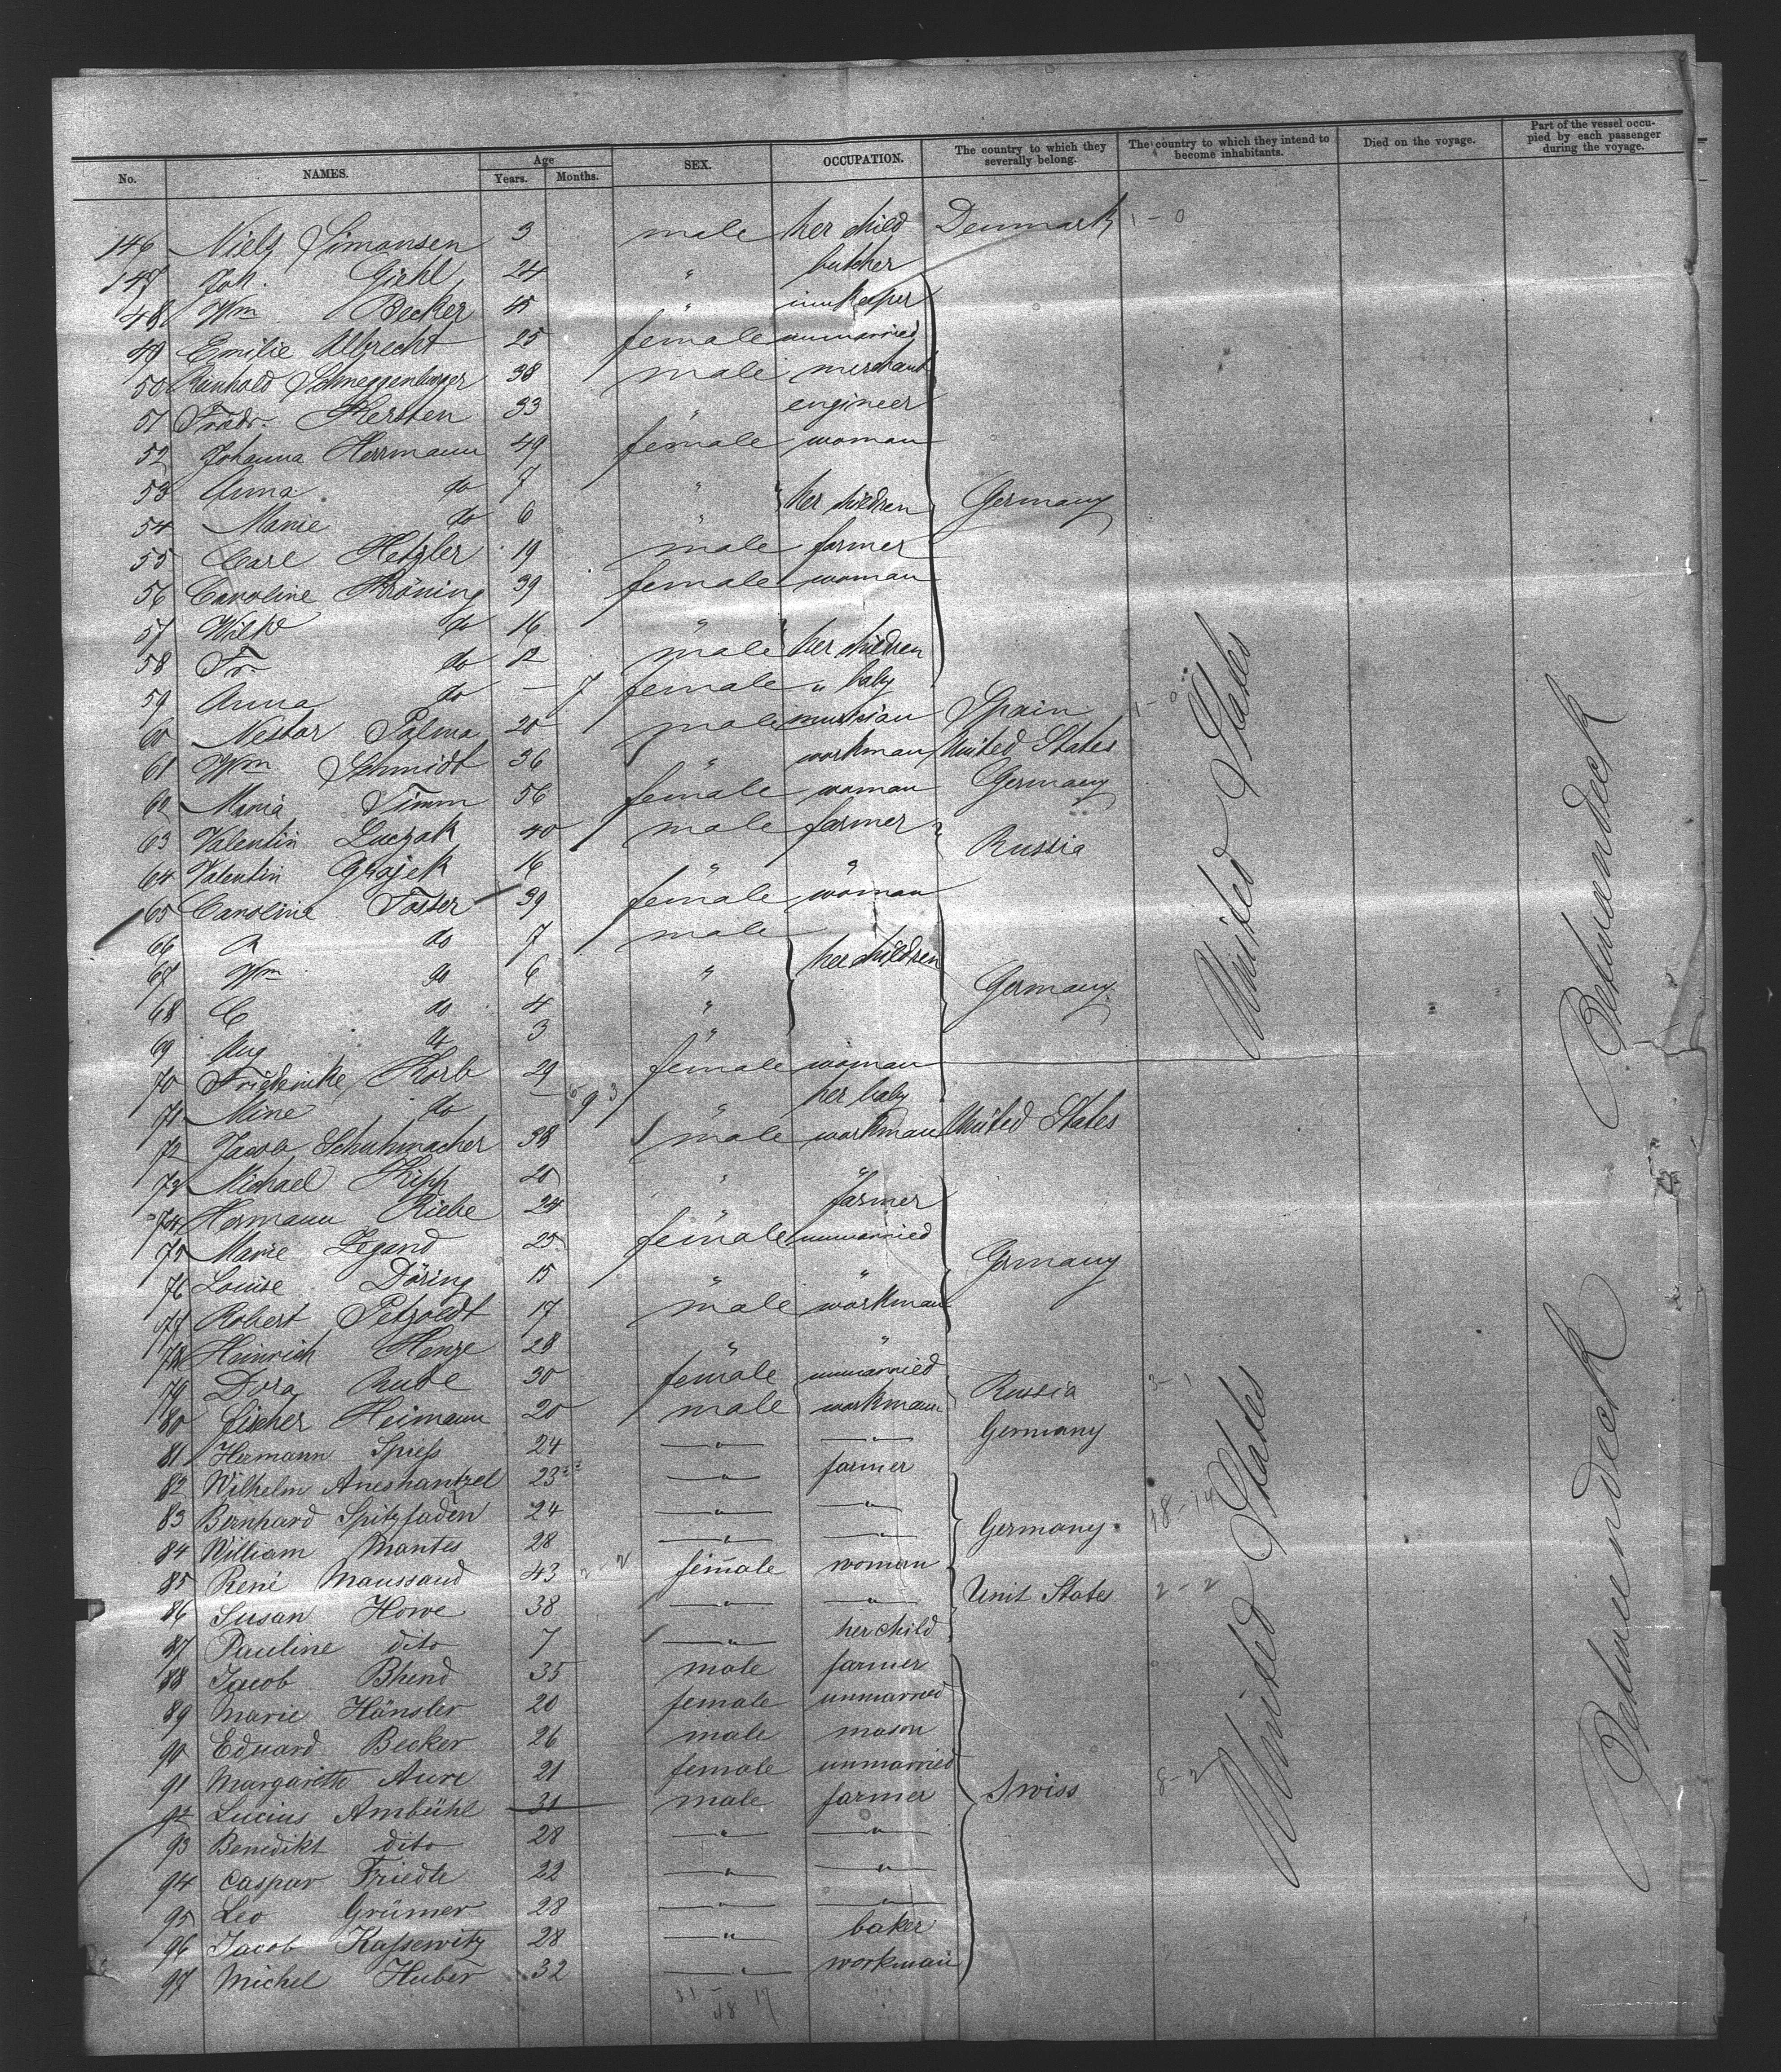 No. NAMES. Age Years. Months. SEX. OCCUPATION. The country to which they severally belong. The country to which they intend to become inhabitants. Died on the voyage. Part of the vessel occupied by each passenger during the voyage.
146 Niels Simonsen 3 male her child Denmark 1-0
147 Joh. Giehl 24 " butcher
48 Wm Becker 45 " innkeeper
49 Emilie Albrecht 25 female unmarried
50 Reinhold Schneggenburger 38 male merchant
51 Friedr. Kersten 33 " engineer
52 Johanna Herrmann 49 female woman
53 Anna do 7 " her children Germany
54 Marie do 6 "
55 Carl Hetzler 19 male farmer
56 Caroline Kröning 39 female woman
57 Wilh do 16 " her children
58 Fr. do 12 male
59 Anna do - 7 female " baby
60 Nestor Palma 20 male musician Spain 1-0
61 Wm Schmidt 36 " workman United States
62 Maria Timm 56 female woman Germany
63 Valentin Luczak 40 male farmer Russia
64 Valentin Grajek 16 " "
65 Caroline Toster 39 female woman
66 R do 7 male
67 Wm do 6 " her children
68 C do 4 " Germany
69 Aug do 3 "
70 Friederike Korb 29 female woman
71 Mine do - 9 " her baby
72 Jacob Schuhmacher 38 male workman United States
73 Michael Kipp 20 " "
74 Hermann Riebe 24 " farmer
75 Marie Legand 25 female unmarried
76 Louise Döring 15 " " Germany
77 Robert Petzoldt 17 male workman
78 Heinrich Henze 28 " "
79 Dora Rube 30 female unmarried
80 Fischer Heimann 20 male workman Russia 3-1
81 Hermann Spiess 24 " " Germany
82 Wilhelm Aneshantzel 23 " farmer
83 Bernhard Spitzfaden 24 " " Germany 18-14
84 William Mantes 28 " "
85 René Maussaud 43 female woman
86 Susan Howe 38 " " Unit States 2-2
87 Pauline dito 7 " her child
88 Jacob Bhend 35 male farmer
89 Marie Hänsler 20 female unmarried
90 Eduard Becker 26 male mason
91 Margaritte Aure 21 female unmarried
92 Lucius Ambühl 31 male farmer Swiss 8-2
93 Benedikt dito 28 " "
94 Caspar Friedte 22 " "
95 Leo Grümer 28 " "
96 Jacob Kassewitz 28 " baker
97 Michel Huber 32 " workman
United States
Betweendeck
United States
Betweendeck